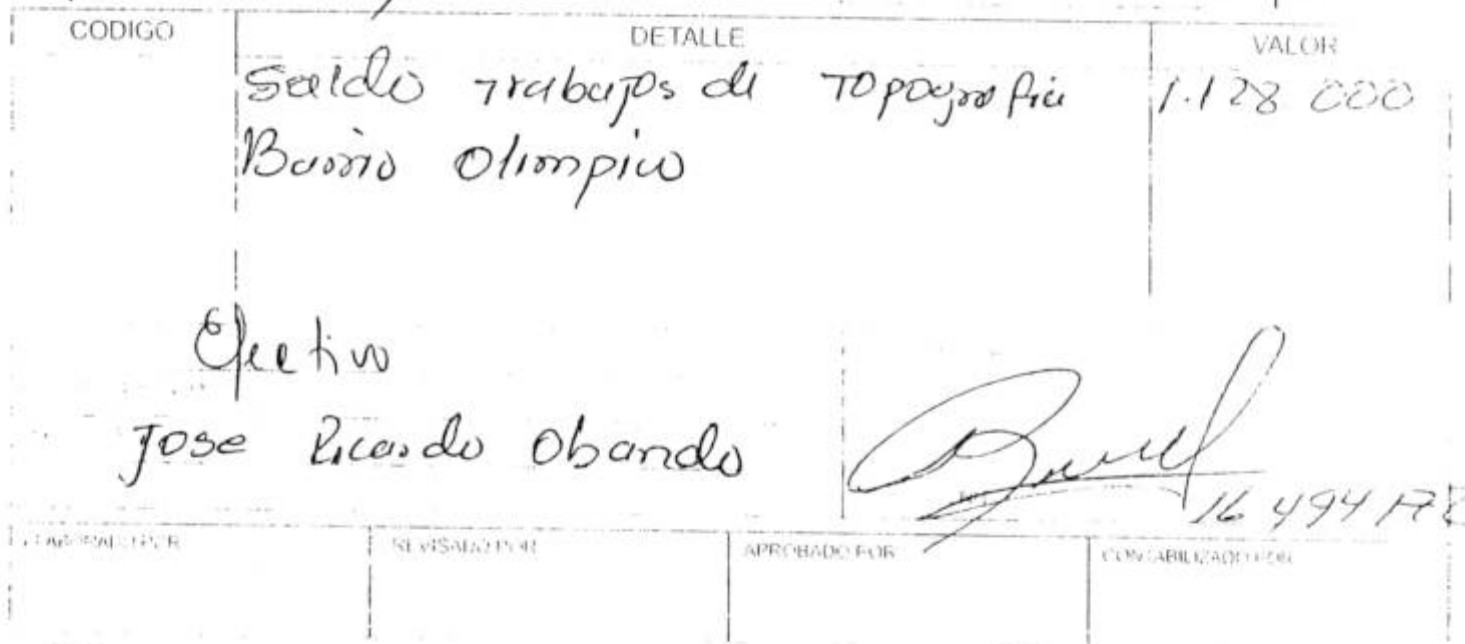 CODIGO DETALLE VALOR
Saldo Trabajos de Topografia 1.128 000
Barrio Olimpico
Efectivo
Jose Ricardo Obando
16 494 17
ELABORADO POR REVISADO POR APROBADO POR CONTABILIZADO POR